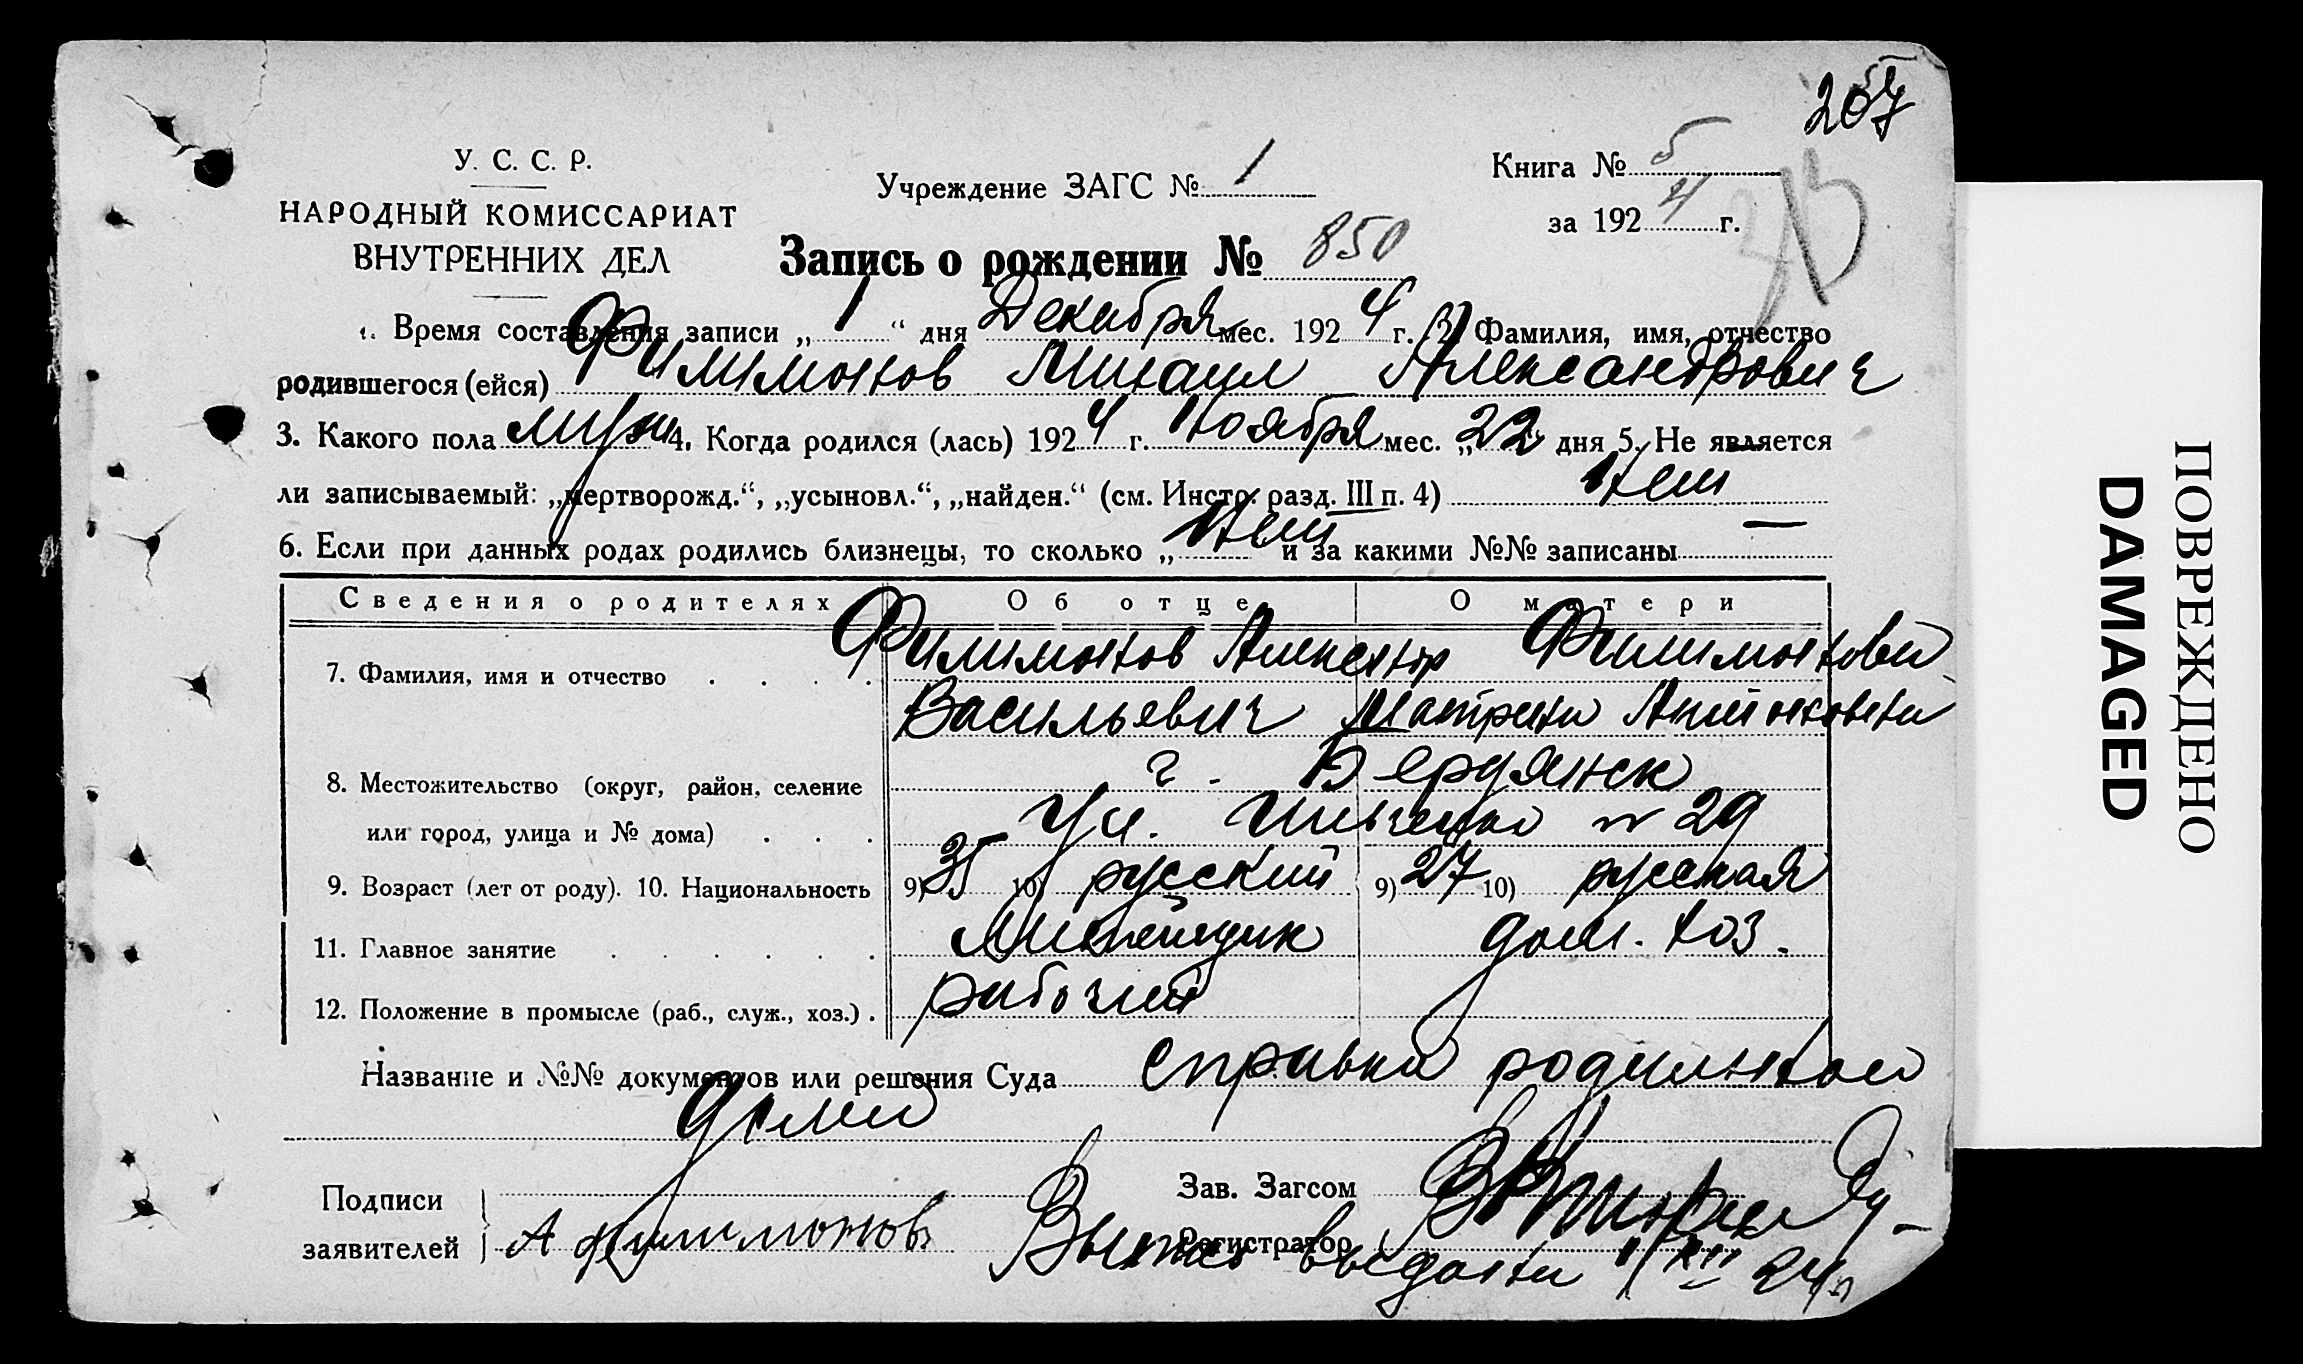 207
У. С. С. Р.
НАРОДНЫЙ КОМИССАРИАТ
ВНУТРЕННИХ ДЕЛ
Учреждение ЗАГС № 1
Книга № 5
за 1924 г.
Запись о рождении № 850
1. Время составления записи „ 1 “ дня Декабря мес. 1924 г. 2) Фамилия, имя, отчество
родившегося (ейся) Филимонов Михаил Александрович
3. Какого пола муж 4. Когда родился (лась) 1924 г. ноября мес. „22 дня 5. Не является
ли записываемый: „мертворожд.“, „усыновл.“, „найден.“ (см. Инстр. разд. III п. 4) Нет
6. Если при данных родах родились близнецы, то сколько „ Нет и за какими №№ записаны —
Сведения о родителях Об отце О матери
7. Фамилия, имя и отчество Филимонов Александр Филимонова
Васильевич Матрена Антоновна
8. Местожительство (округ, район, селение г. Бердянск
или город, улица и № дома) Ул. № 29
9. Возраст (лет от роду). 10. Национальность 9) 35 10) русский 9) 27 10) русская
11. Главное занятие Литейщик дом. хоз.
12. Положение в промысле (раб., служ., хоз.) рабочий
Название и №№ документов или решения Суда справка родильного
дома
Подписи
заявителей А Филимонов
Зав. Загсом
Регистратор
Выпись выдана 1/XII 24 г.
ПОВРЕЖДЕНО
DAMAGED